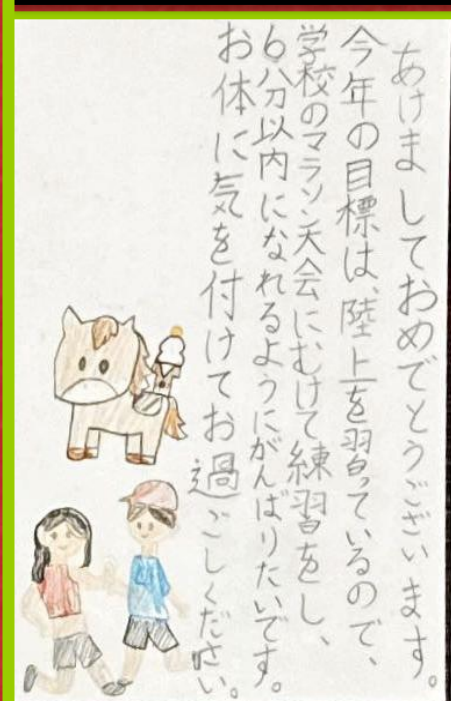 あけましておめでとうございます。
今年の目標は、陸上を習っているので、
学校のマラソン大会にむけて練習をし、
6分以内になれるようにがんばりたいです。
お体に気を付けてお過ごしください。